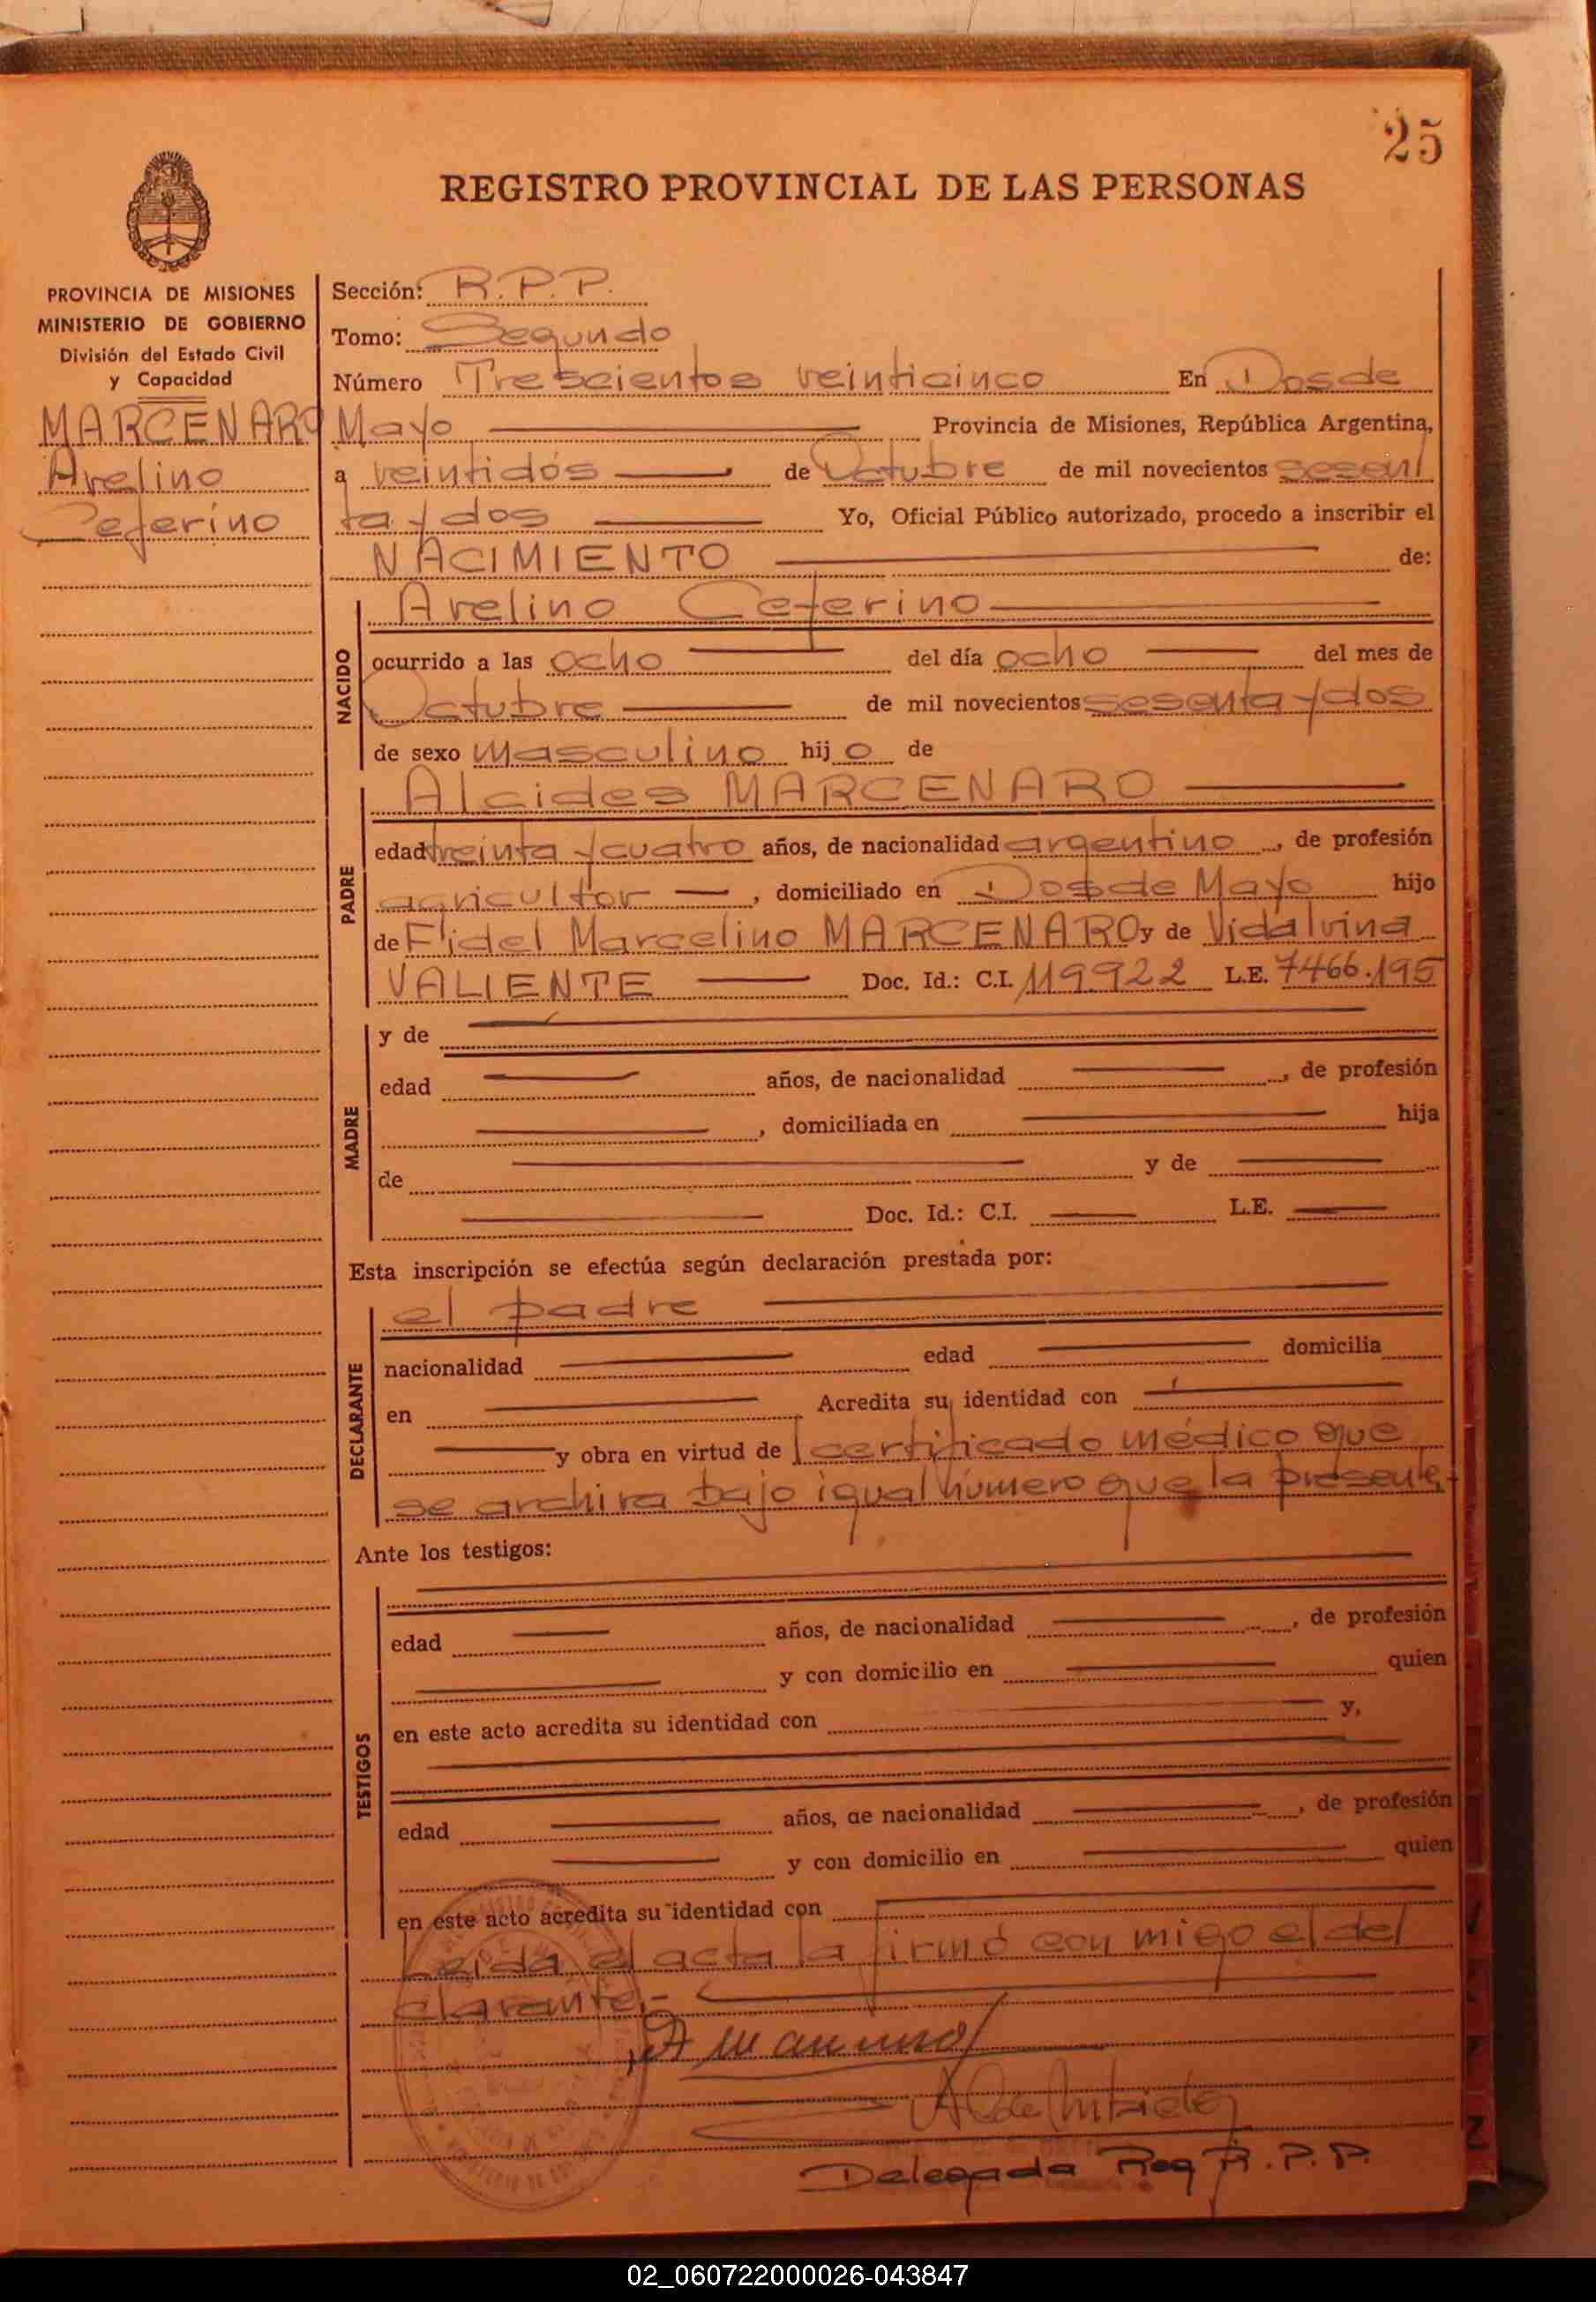 25
REGISTRO PROVINCIAL DE LAS PERSONAS
PROVINCIA DE MISIONES
MINISTERIO DE GOBIERNO
División del Estado Civil
y Capacidad
MARCENARO
Avelino
Ceferino
Sección: R.P.P.
Tomo: Segundo
Número Trescientos veinticinco En Dos de
Mayo Provincia de Misiones, República Argentina,
a veintidós de Octubre de mil novecientos sesen
ta y dos Yo, Oficial Público autorizado, procedo a inscribir el
NACIMIENTO de:
NACIDO
Avelino Ceferino
ocurrido a las ocho del día ocho del mes de
Octubre de mil novecientos sesenta y dos
de sexo masculino hijo de
PADRE
Alcides MARCENARO
edad treinta y cuatro años, de nacionalidad argentino, de profesión
agricultor, domiciliado en Dos de Mayo hijo
de Fidel Marcelino MARCENARO y de Vidalvina
VALIENTE Doc. Id.: C.I. 119922 L.E. 7466.195
MADRE
y de
edad años, de nacionalidad , de profesión
, domiciliada en hija
de y de
Doc. Id.: C.I. L.E.
Esta inscripción se efectúa según declaración prestada por:
DECLARANTE
el padre
nacionalidad edad domicilia
en Acredita su identidad con
y obra en virtud de certificado médico que
se archiva bajo igual número que la presente.-
Ante los testigos:
TESTIGOS
edad años, de nacionalidad , de profesión
y con domicilio en quien
en este acto acredita su identidad con y,
edad años, de nacionalidad , de profesión
y con domicilio en quien
en este acto acredita su identidad con
Leída el acta la firmó con migo el de
clarante.-
Delegada Reg R.P.P.
02_060722000026-043847